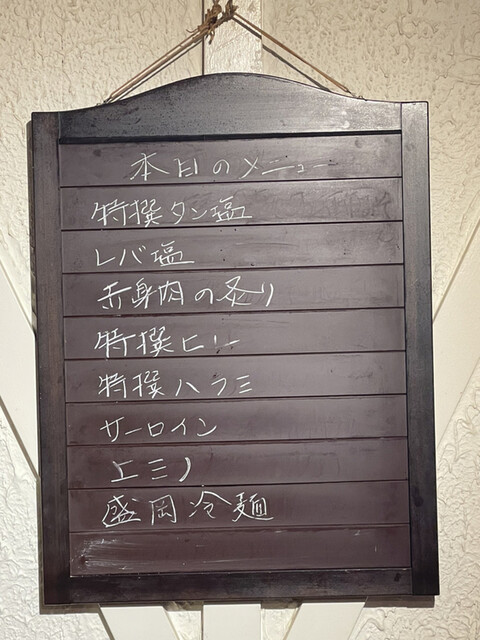 本日のメニュー
特撰タン塩
レバ塩
赤身肉の炙り
特撰ヒレー
特撰ハラミ
サーロイン
上ミノ
盛岡冷麺